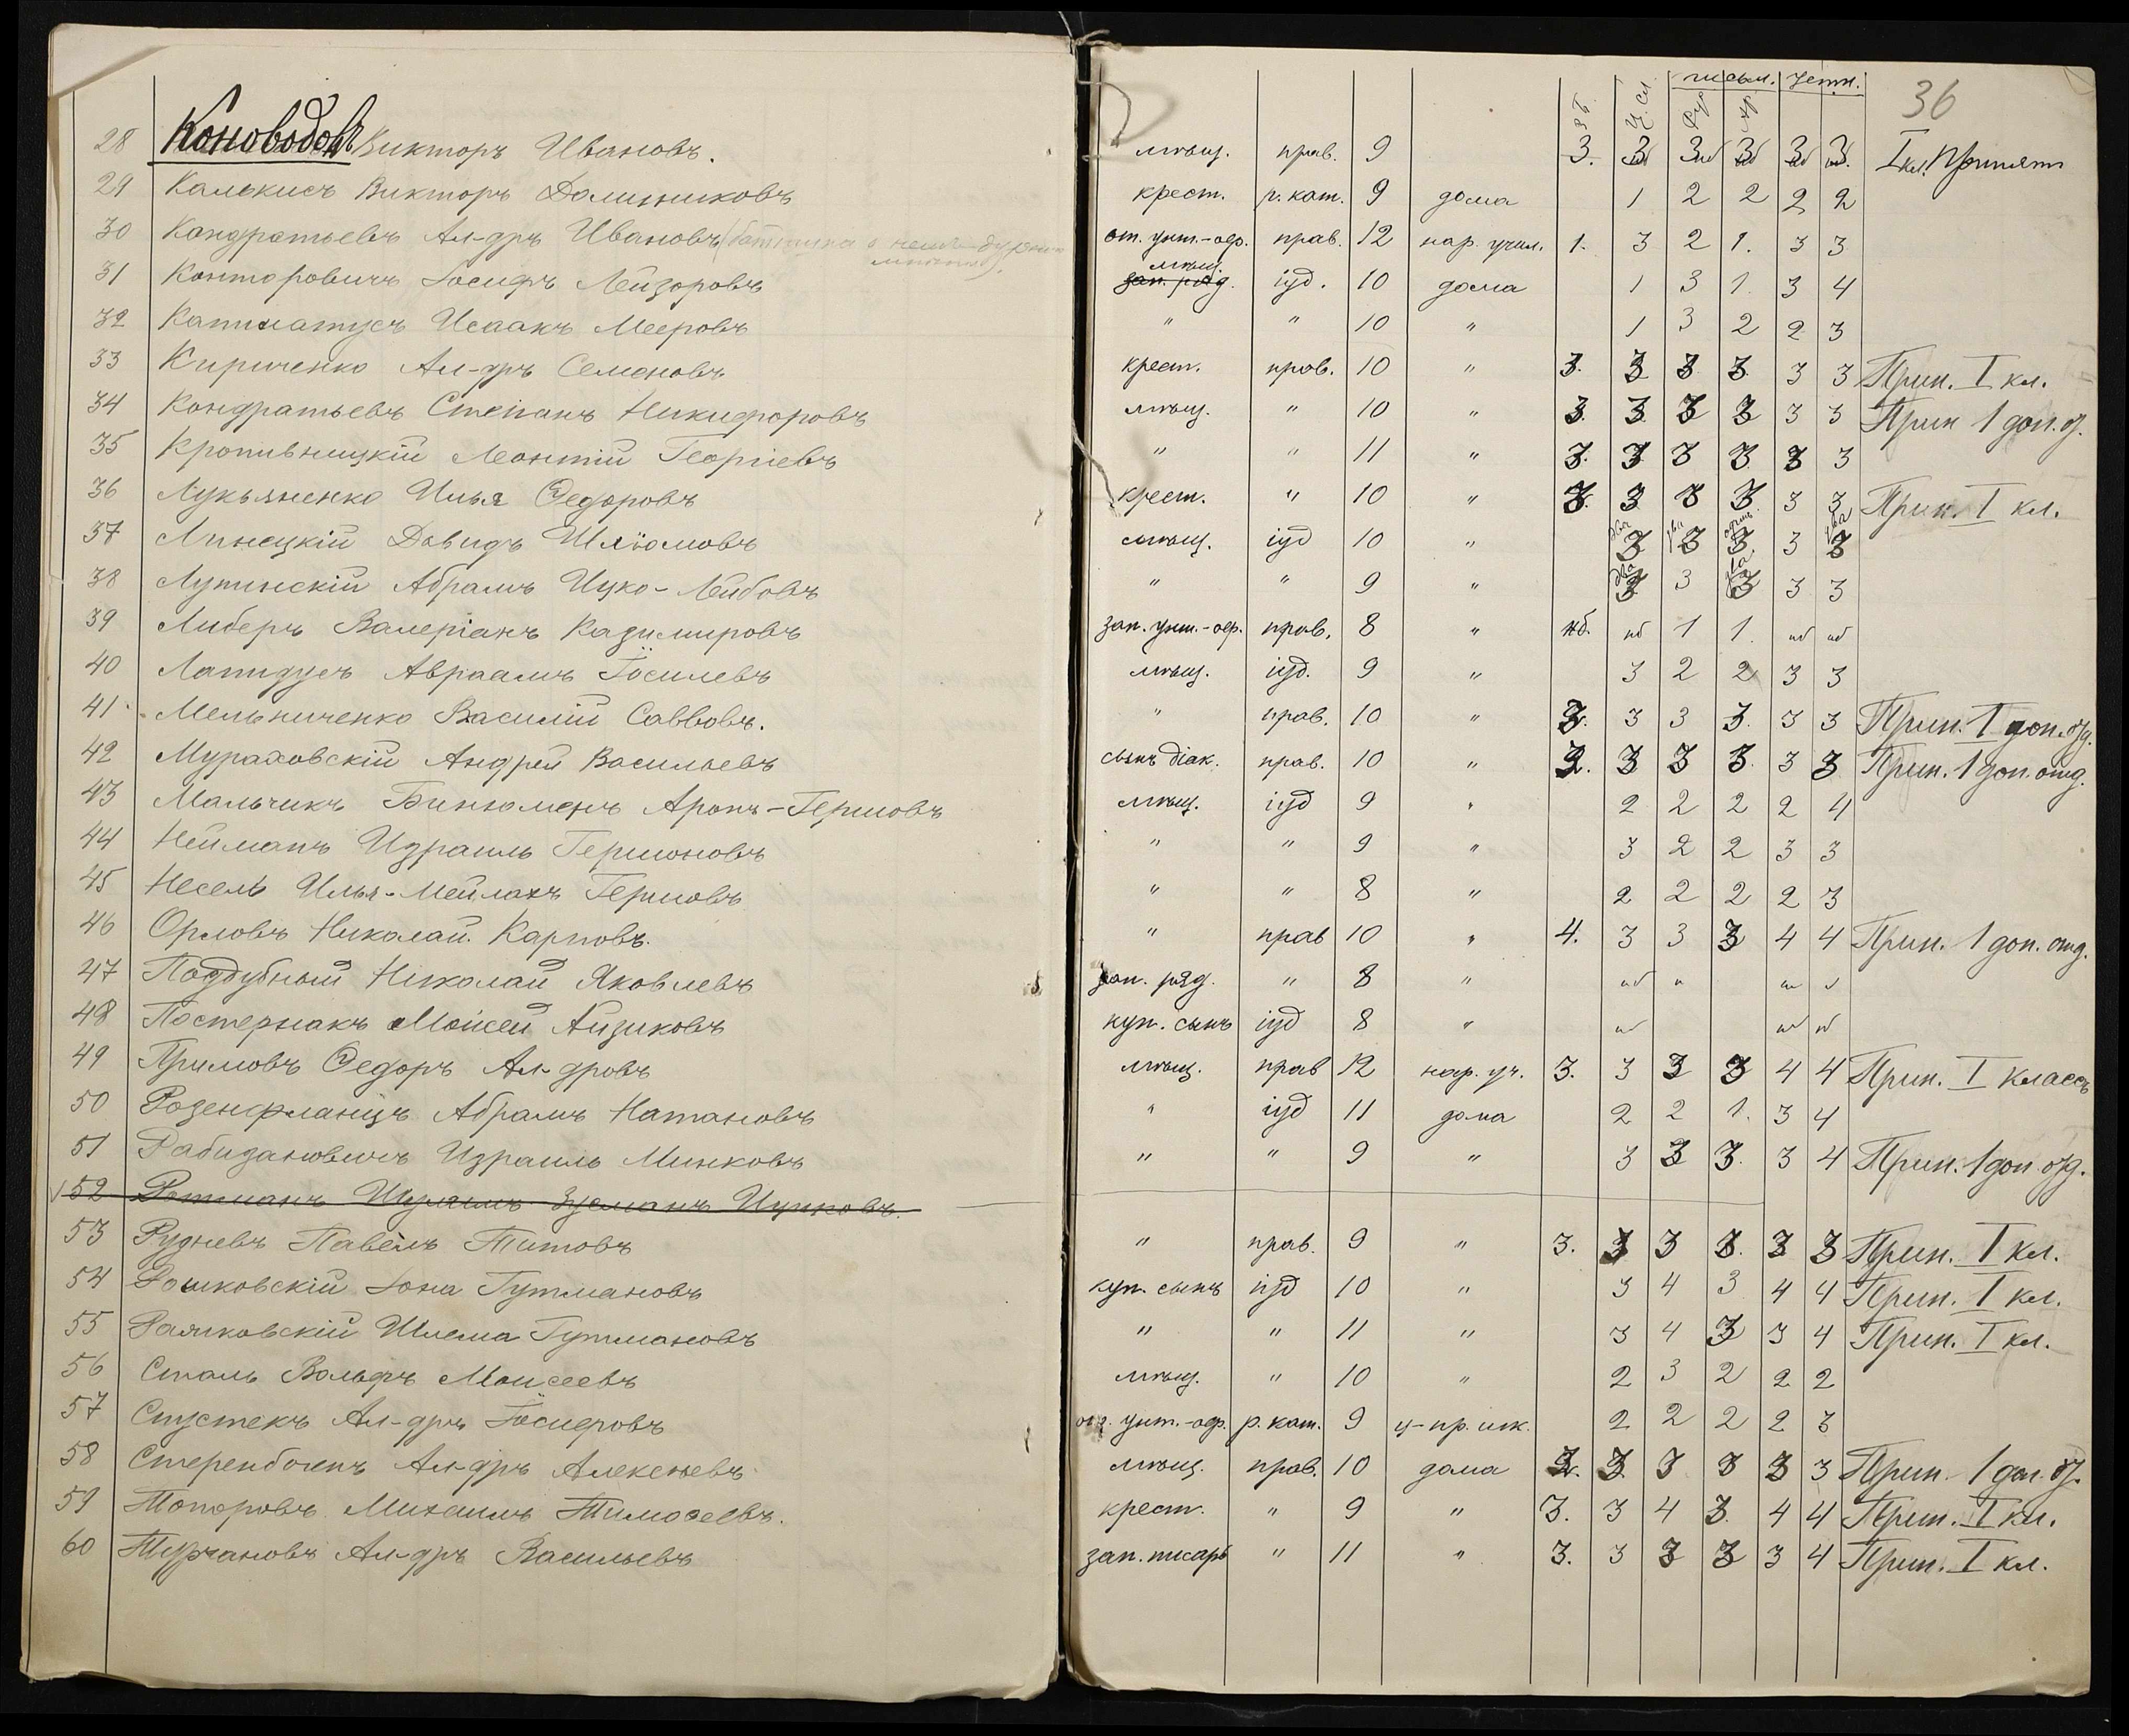 письм. устн. 36
28 Коноводовъ Викторъ Ивановъ. мѣщ. прав. 9 3. 3 3 3 3 3 I кл. Принят
29 Калькисъ Викторъ Доминиковъ крест. р. кат. 9 дома 1 2 2 2 2
30 Кондратьевъ Ал-дръ Ивановъ от. унт.-оф. прав. 12 нар. учил. 1. 3 2 1. 3 3
31 Канторовичъ Іосифъ Лейзоровъ мѣщ. зап. ряд. іуд. 10 дома 1 3 1. 3 4
32 Исаакъ Мееровъ " " 10 " 1 3 2 2 3
33 Кириченко Ал-дръ Семеновъ крест. прав. 10 " 3. 3 3 3. 3 3 Прин. I кл.
34 Кондратьевъ Степанъ Никифоровъ мѣщ. " 10 " 3. 3. 3 3 3 3 Прин 1 доп. о.
35 Кропивницкій Леонтій Георгіевъ " " 11 " 3. 3. 3 3. 3 3
36 Лукьяненко Илья Ѳедоровъ крест. " 10 " 3. 3. 3 3 3 3 Прин. I кл.
37 Линецкій Давидъ Шліомовъ мѣщ. іуд 10 " два 3 два 3 одинъ 3. 3 два 3
38 Лупинскій Абрамъ Ицко-Лейбовъ " " 9 " два 3 3 два 3 3 3
39 Либеръ Валеріанъ Казимировъ зап. унт.-оф. прав. 8 " нб. нб 1 1. нб нб
40 Лапидусъ Авраамъ Іосилевъ мѣщ. іуд. 9 " 3 2 2 3 3
41 Мельниченко Василій Саввовъ. " прав. 10 " 2. 3 3 3. 3 3 Прин. I доп. отд.
42 Мураховскій Андрей Васильевъ сынъ діак. прав. 10 " 2. 3 3 3. 3 3 Прин. 1 доп. отд.
43 Мальчикъ Биньюменъ Аронъ-Гершовъ мѣщ. іуд 9 " 2 2 2 2 4
44 Нейманъ Израиль Гершоновъ " " 9 " 3 2 2 3 3
45 Несель Илья-Мейлахъ Гершовъ " " 8 " 2 2 2 2 3
46 Орловъ Николай Карповъ. " прав 10 " 4. 3 3 3 4 4 Прин. 1 доп. отд.
47 Поддубный Николай Яковлевъ зап. ряд. " 8 " нб
48 Постернакъ Моисей Айзиковъ куп. сынъ іуд 8 " нб нб нб
49 Примовъ Ѳедоръ Ал-дровъ мѣщ. прав 12 нар. уч. 3. 3 3 3 4 4 Прин. I классъ
50 Розенфланцъ Абрамъ Натановъ " іуд 11 дома 2 2 1. 3 4
51 Рабидановичъ Израиль Минковъ " " 9 " 3 3 3. 3 4 Прин. 1 доп. отд.
52 Ротманъ Зусманъ Ицковъ.
53 Рудневъ Павелъ Титовъ " прав. 9 " 3. 3 3 3. 3 3 Прин. I кл.
54 Рошковскій Іона Гутмановъ куп. сынъ іуд 10 " 3 4 3 4 4 Прин. I кл.
55 Рашковскій Шлема Гутмановъ " " 11 " 3 4 3 3 4 Прин. I кл.
56 Сталь Вольфъ Моисеевъ мѣщ. " 10 " 2 3 2 2 2
57 Спустекъ Ал-дръ Іосифовъ унт.-оф. р. кат. 9 ц-пр. шк. 2 2 2 2 3
58 Ал-дръ Алексѣевъ мѣщ. прав. 10 дома 2. 3. 3 3 3 3 Прин. 1 доп. о.
59 Топоровъ Михаилъ Тимоѳеевъ. крест. " 9 " 3. 3 4 3. 4 4 Прин. I кл.
60 Турчановъ Ал-дръ Васильевъ зап. писарь " 11 " 3. 3 3 3 3 4 Прин. I кл.